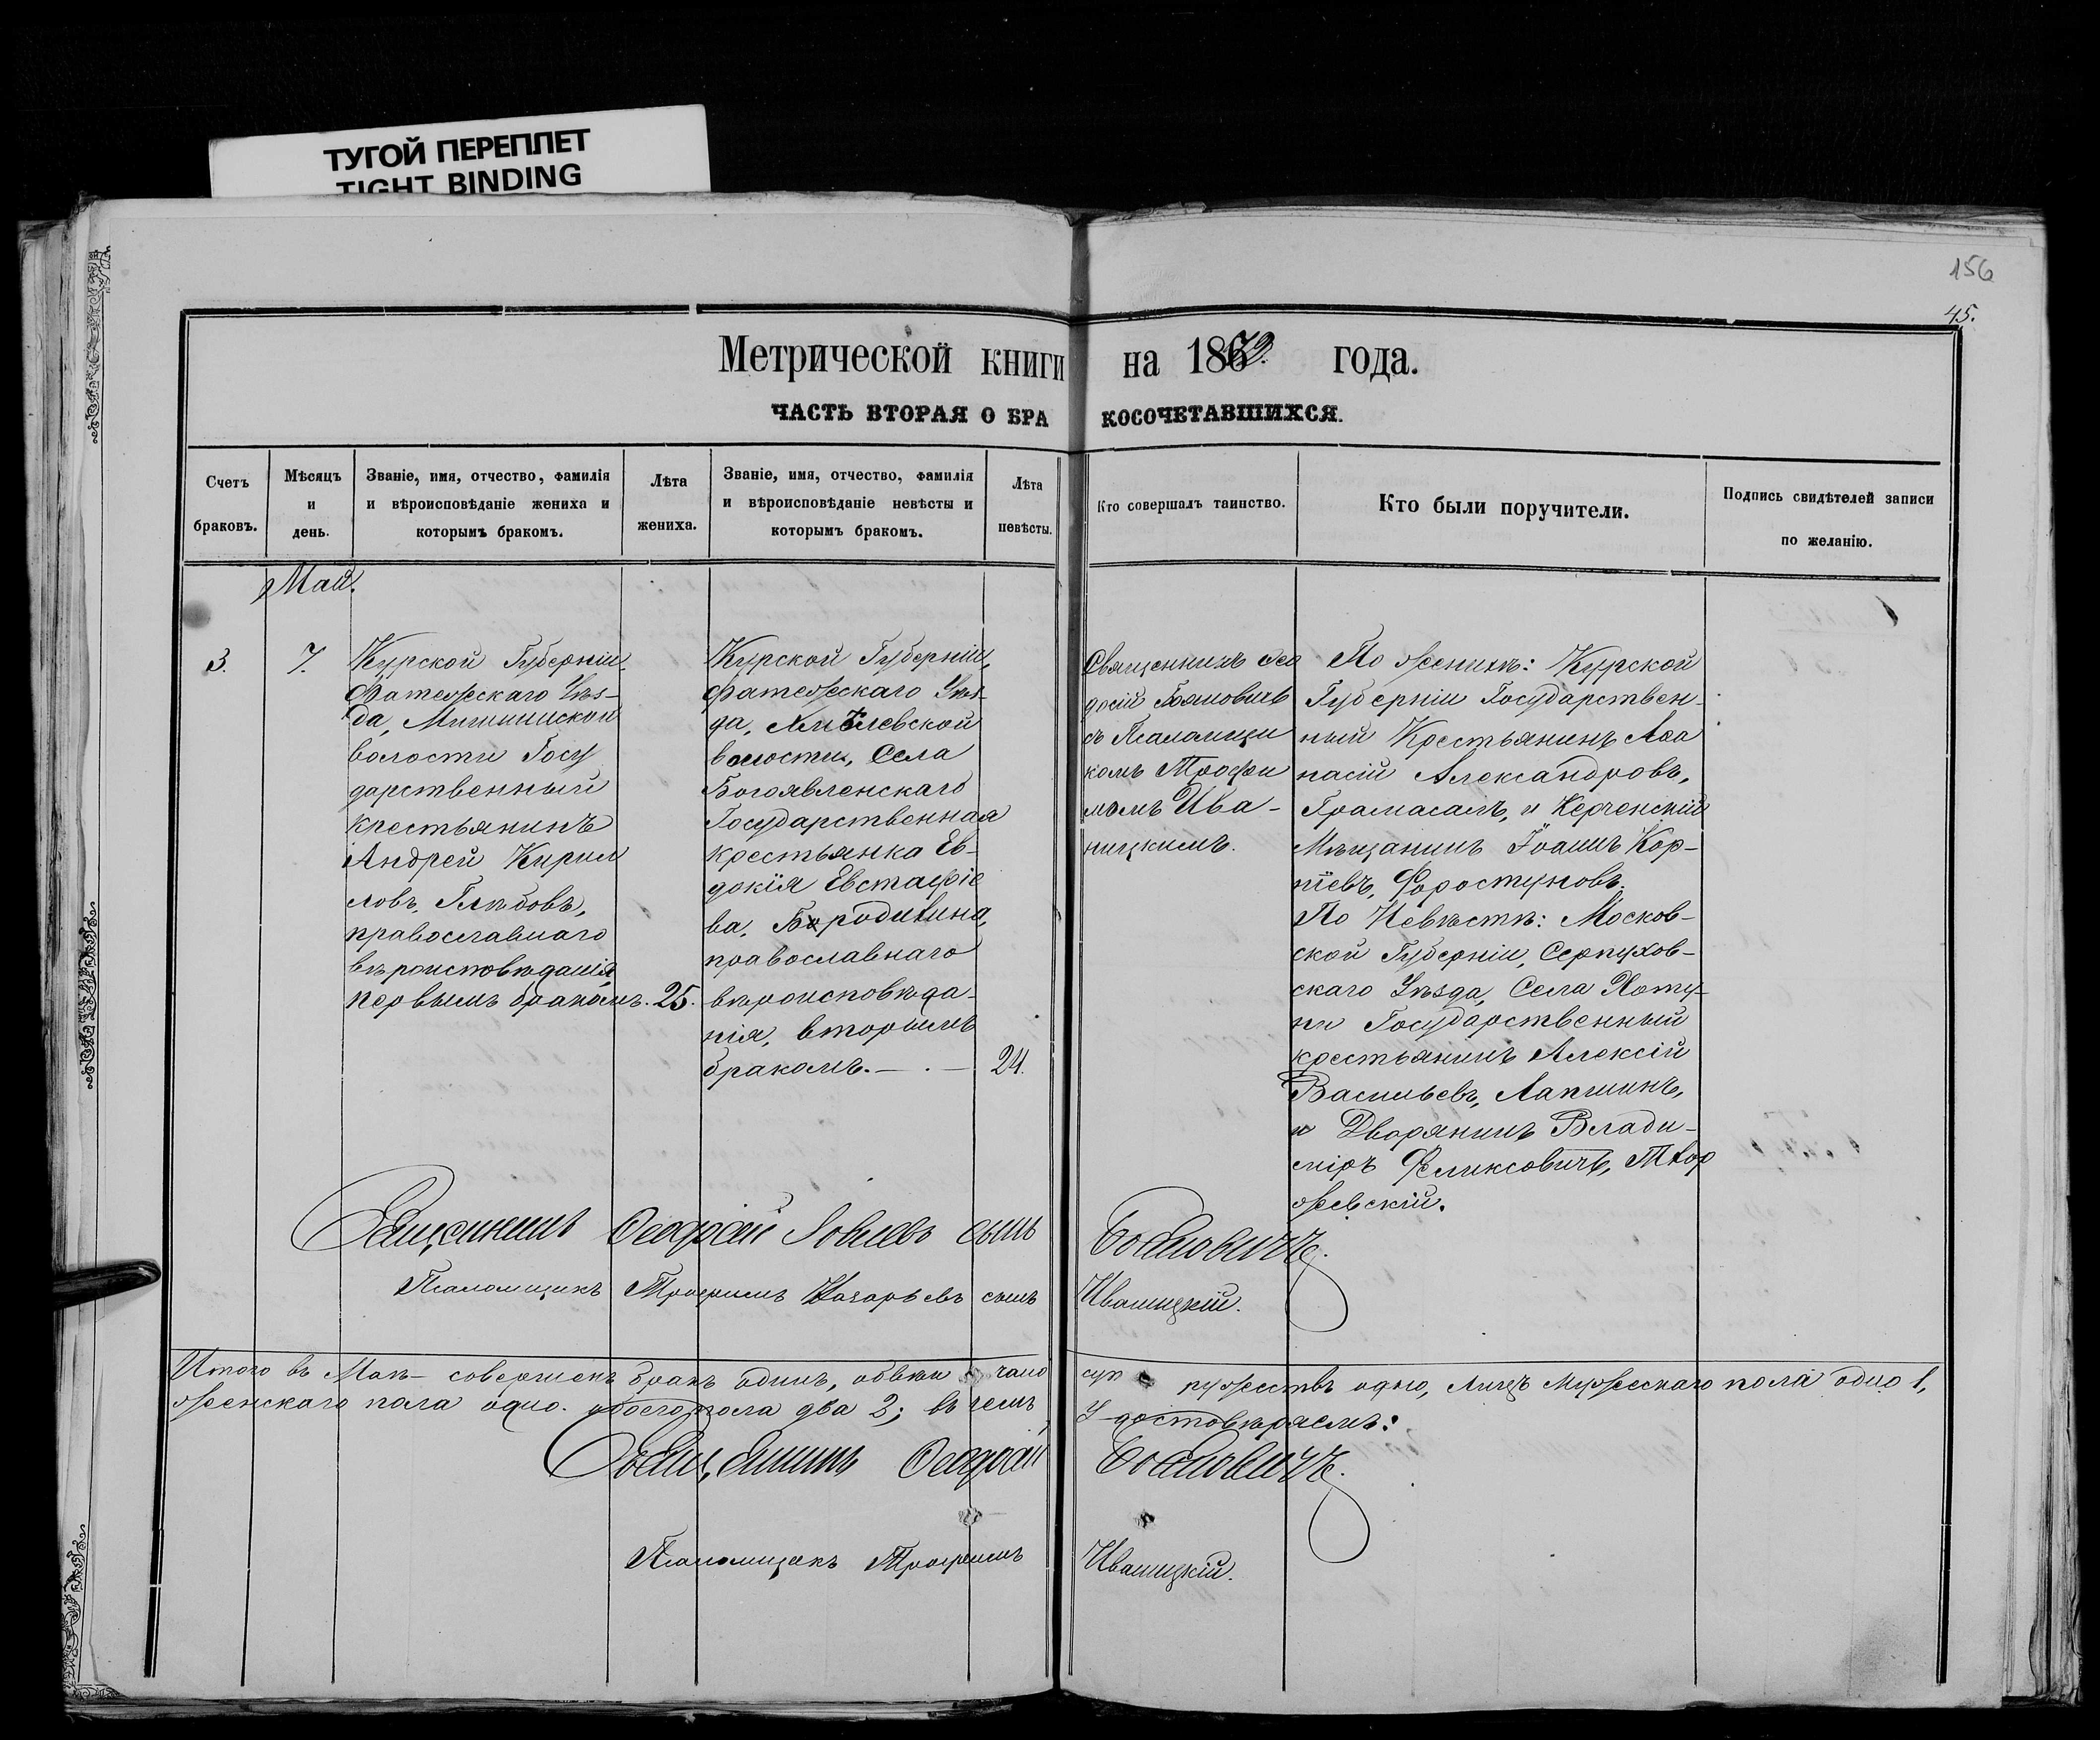 ТУГОЙ ПЕРЕПЛЕТ
TIGHT BINDING
156
45.
Метрической книги на 1872. года.
ЧАСТЬ ВТОРАЯ О БРАКОСОЧЕТАВШИХСЯ.
Счетъ
браковъ.
Мѣсяцъ
и
день.
Званіе, имя, отчество, фамилія
и вѣроисповѣданіе жениха и
которымъ бракомъ.
Лѣта
жениха.
Званіе, имя, отчество, фамилія
и вѣроисповѣданіе невѣсты и
которымъ бракомъ.
Лѣта
невѣсты.
Кто совершалъ таинство.
Кто были поручители.
Подпись свидѣтелей записи
по желанію.
Май.
3.
7.
Курской Губерніи,
Фатежскаго Уѣз-
да,
волости Госу
дарственный
крестьянинъ
Андрей Кирил
ловъ, Глѣбовъ,
православнаго
вѣроисповѣданія,
первымъ бракомъ.
25.
Курской Губерніи,
Фатежскаго Уѣз
да,
волости, Села
Богоявленскаго
Государственная
крестьянка Ев-
докія Евстафіе
ва, Бородикина,
православнаго
вѣроисповѣда-
нія, вторымъ
бракомъ.
24.
Священникъ Ѳео
досій Бояновичъ
съ Псаломщи
комъ Трофи
момъ Ива-
ницкимъ.
По женихѣ: Курской
Губерніи Государствен-
ный Крестьянинъ Аѳа
насій Александровъ,
и Керченскій
Мѣщанинъ Іоаннъ Кор-
ніевъ, Форостуновъ.
По Невѣстѣ: Москов-
ской Губерніи, Серпухов-
скаго Уѣзда, Села Хату-
ни Государственный
крестьянинъ Алексій
Васильевъ, Лапшинъ,
и Дворянинъ Влади-
міръ Феликсовичъ, Твор
жевскій.
Священникъ Ѳеодосій Іовлевъ сынъ Бояновичъ.
Псаломщикъ Трофимъ Назарьевъ сынъ Иваницкій.
Итого въ Маѣ совершенъ бракъ одинъ, обвѣнчано супружествъ одно, Лицъ мужескаго пола одно 1,
женскаго пола одно. обоего пола два 2; въ чемъ Удостовѣряемъ:
Священникъ Ѳеодосій Бояновичъ.
Псаломщикъ Трофимъ Иваницкій.